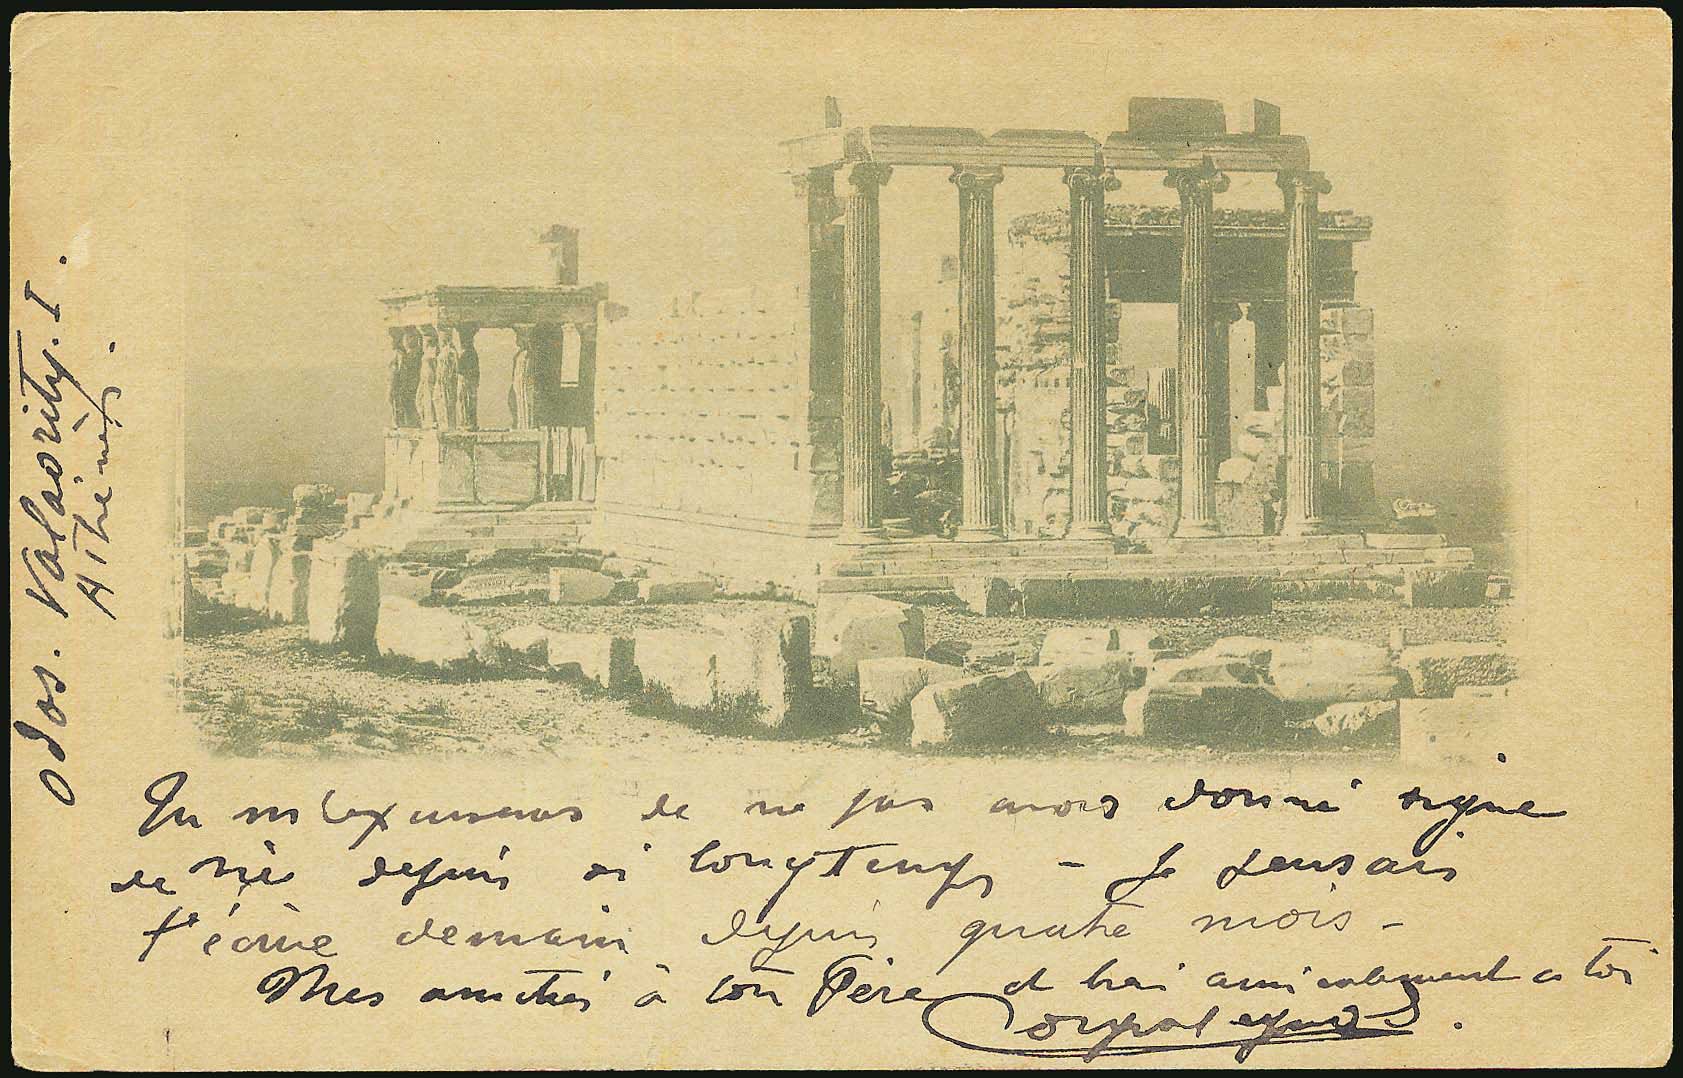 odos. Valaority. I.
Athènes.
Tu m'excuseras de ne pas avoir donné signe
de vie depuis si longtemps – Je pensais
t'écrire demain depuis quatre mois –
Mes amitiés à ton Père et bien amicalement a toi